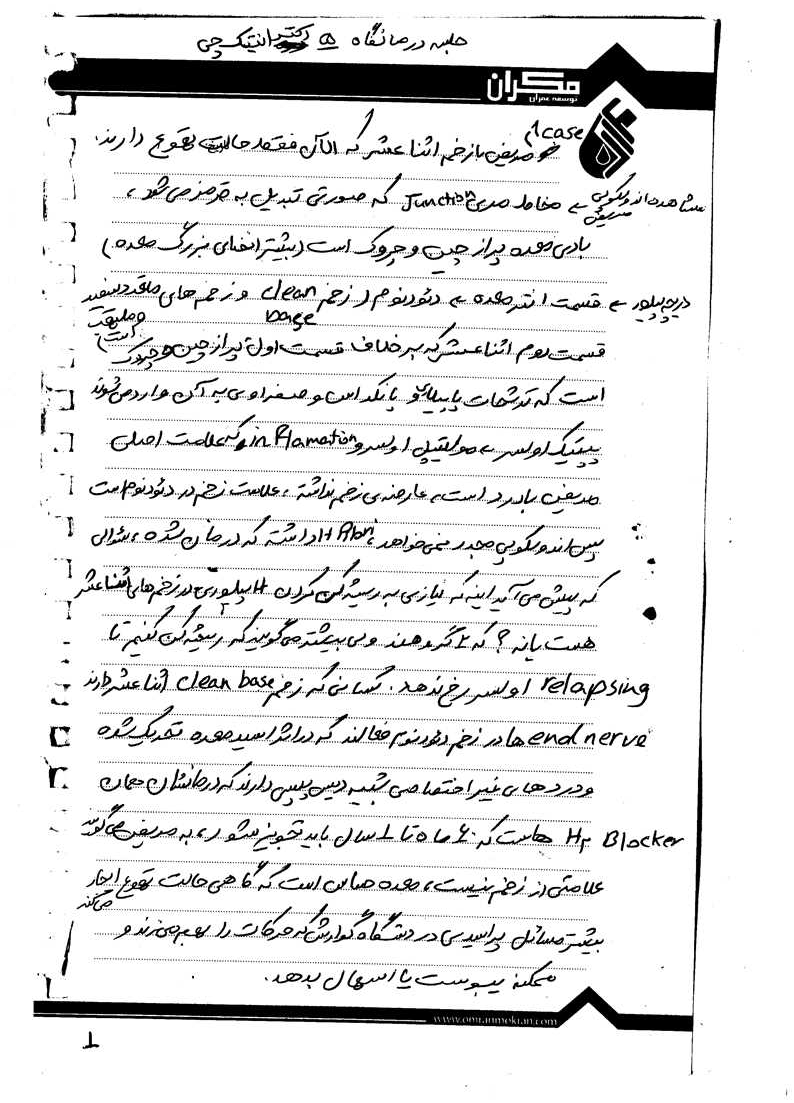 جلسه درمانگاه ۵ دکتر انتیک چی
مکران
توسعه عمران
1 case
مریض با زخم اثنا عشر که الآن فقط حالت تهوع دارند.
مشاهده اندوسکوپی مریض ← مخاط مری Junction که صورتی تبدیل به قرمز می شود،
بادی معده پر از چین و چروک است (بیشتر انحنای بزرگ معده)
دریچه پیلور ← قسمت انتر معده ← دئودنوم (زخم clean base و زخم های سفید و عمیق است)
قسمت دوم اثنا عشر که برخلاف قسمت اول، پر از چین و چروک
است که ترشحات پاپیلای پانکراس و صفراوی به آن وارد می شوند
پپتیک اولسر ← مولتیپل اولسر و inflamation، که علامت اصلی
مریض با درد است، عارضه ی زخم نداشته، علامت زخم در دئودنوم است
پس اندوسکوپی مجدد نمی خواهد، H Pylori داشته که درمان شده، سئوالی
که پیش می آید اینه که نیازی به ریشه کن کردن H پیلوری در زخم های اثنا عشر
هست یا نه؟ که 2 گروهند ولی بیشتر می گویند که ریشه کن کنیم تا
relapsing اولسر رخ ندهد. کسانی که زخم clean base اثنا عشر دارند
end nerve ها در زخم دئودنوم فعالند که در اثر اسید معده تحریک شده
و دردهای غیر اختصاصی شبیه دیس پپسی دارند که درمانشان همان
H2 Blocker هاست که 6 ماه تا 1 سال باید تجویز بشود، به مریض می گویید
علامتی از زخم نیست، معده حساس است که گاهی حالت تهوع ایجاد می کند
بیشتر مسائل پراسیدی در دستگاه گوارش که حرکات را بهم می زند و
ممکنه یبوست یا اسهال بدهد.
www.omranmokran.com
1